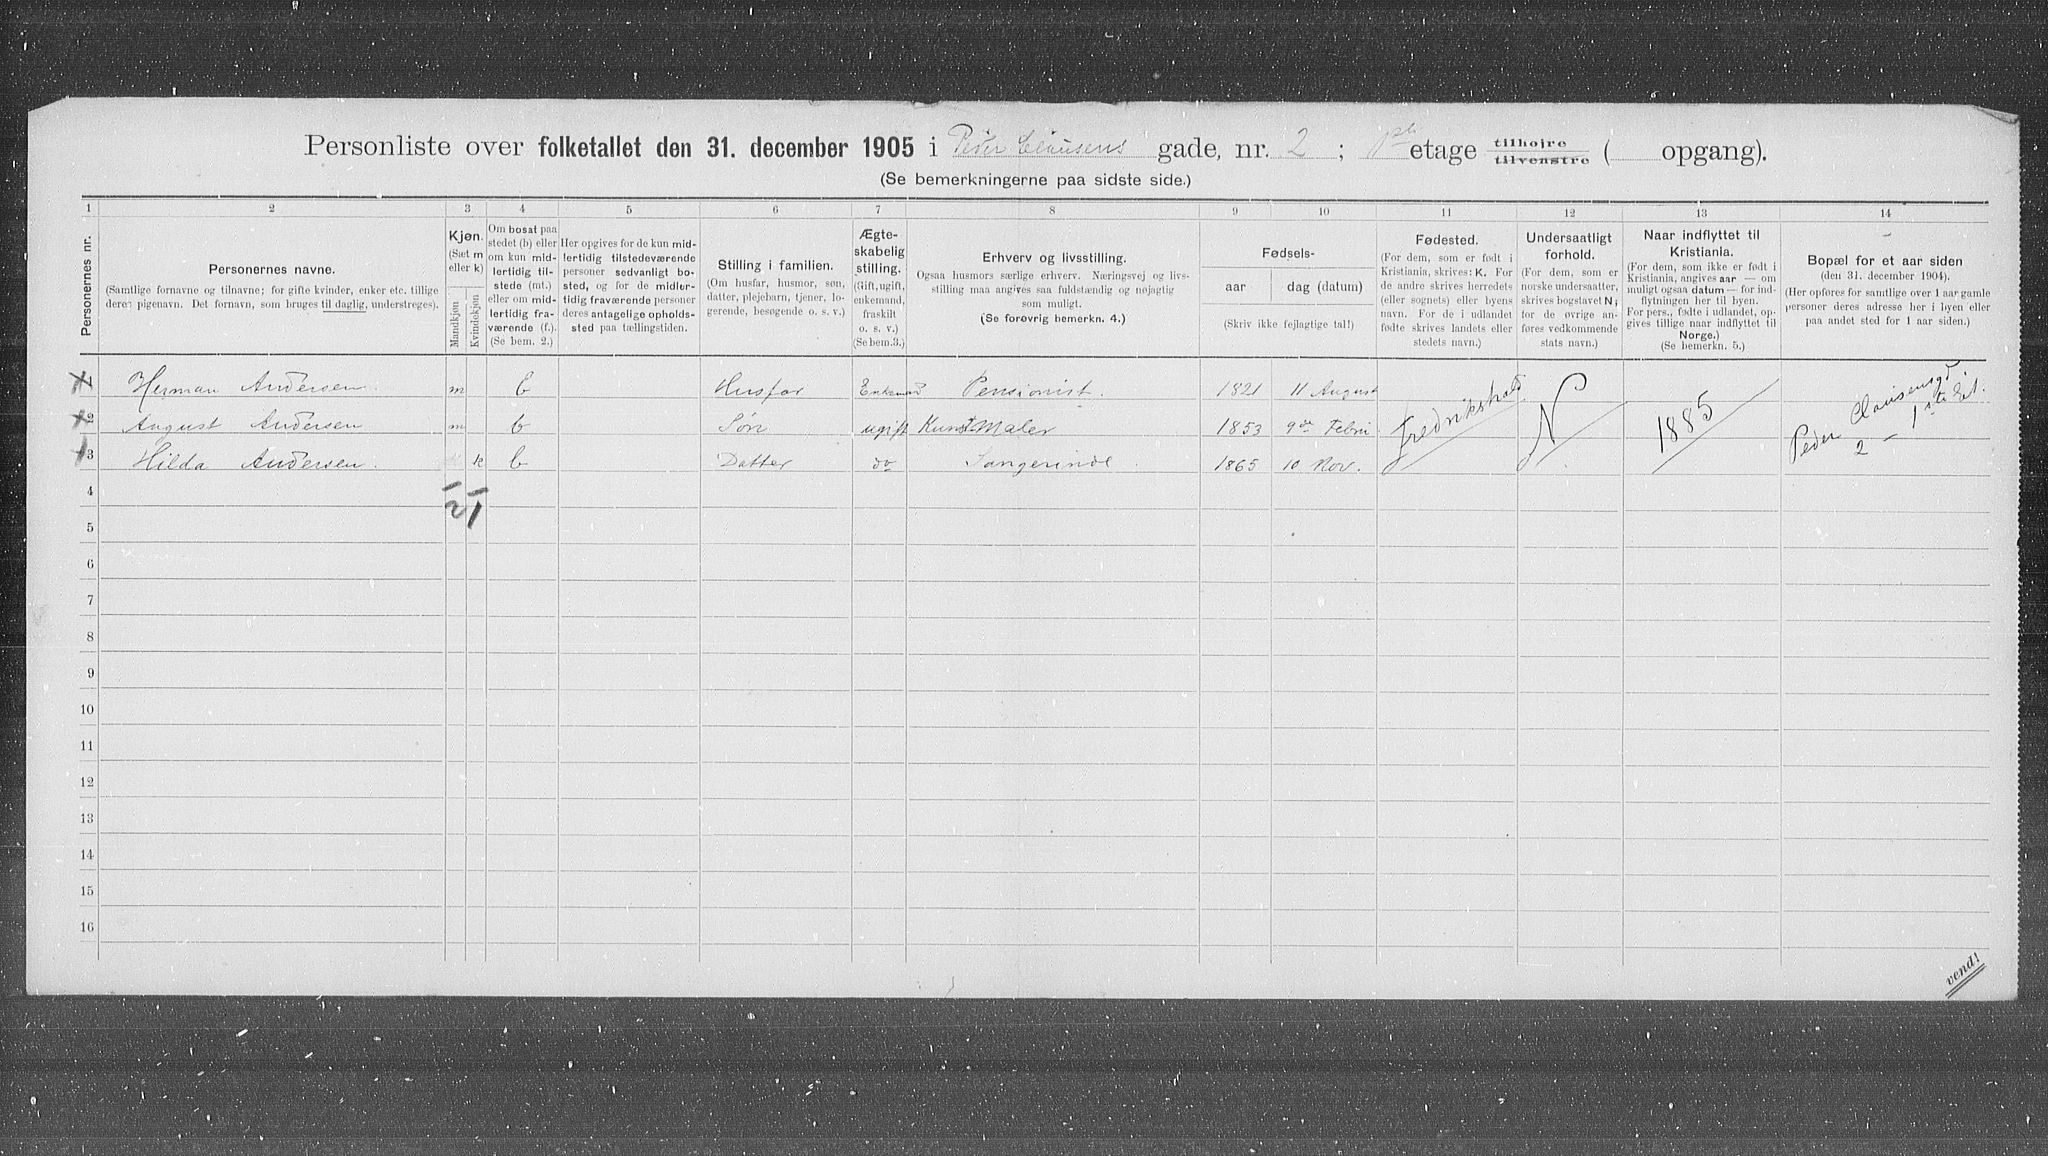 Personliste over folketallet den 31. december 1905 i Peder Clausens gade, nr. 2 ; 1ste etage tilhøjre tilvenstre ( opgang).
(Se bemerkningerne paa sidste side.)
1 2 3 4 5 6 7 8 9 10 11 12 13 14
Personernes nr.
Personernes navne.
(Samtlige fornavne og tilnavne; for gifte kvinder, enker etc. tillige
deres pigenavn. Det fornavn, som bruges til daglig, understreges).
Kjøn.
(Sæt m
eller k)
Mandkjøn
Kvindekjøn
Om bosat paa
stedet (b) eller
om kun mid-
lertidig til-
stede (mt.)
eller om mid-
lertidig fra-
værende (f.).
(Se bem. 2.)
Her opgives for de kun mid-
lertidig tilstedeværende
personer sedvanligt bo-
sted, og for de midler-
tidig fraværende personer
deres antagelige opholds-
sted paa tællingstiden.
Stilling i familien.
(Om husfar, husmor, søn,
datter, plejebarn, tjener, lo-
gerende, besøgende o. s. v.)
Ægte-
skabelig
stilling.
(Gift, ugift,
enkemand,
fraskilt
o. s. v.)
(Se bem.3.)
Erhverv og livsstilling.
Ogsaa husmors særlige erhverv. Næringsvej og livs-
stilling maa angives saa fuldstændig og nøjagtig
som muligt.
(Se forøvrig bemerkn. 4.)
Fødsels-
aar
dag (datum)
(Skriv ikke fejlagtige tal!)
Fødested.
(For dem, som er født i
Kristiania, skrives: K. For
de andre skrives herredets
(eller sognets) eller byens
navn. For de i udlandet
fødte skrives landets eller
stedets navn.)
Undersaatligt
forhold.
(For dem, som er
norske undersaatter,
skrives bogstavet N;
for de øvrige an-
føres vedkommende
stats navn.)
Naar indflyttet til
Kristiania.
(For dem, som ikke er født i
Kristiania, angives aar — om
muligt ogsaa datum — for ind-
flytningen her til byen.
For pers., fødte i udlandet, op-
gives tillige naar indflyttet til
Norge.)
(Se bemerkn. 5.)
Bopæl for et aar siden
(den 31. december 1904).
(Her opføres for samtlige over 1 aar gamle
personer deres adresse her i byen eller
paa andet sted for 1 aar siden.)
1 Herman Andersen. m b Husfar Enkemd Pensionist. 1821 11 August
2 August Andersen m b Søn ugift Kunstmaler 1853 9de Febru Fredrikshald N 1885 Peder Clausensgd
2 - 1ste Et.
3 Hilda Andersen. k b Datter do Sangerinde. 1865 10 Nov.
4
2 1
5
6
7
8
9
10
11
12
13
14
15
16
vend!